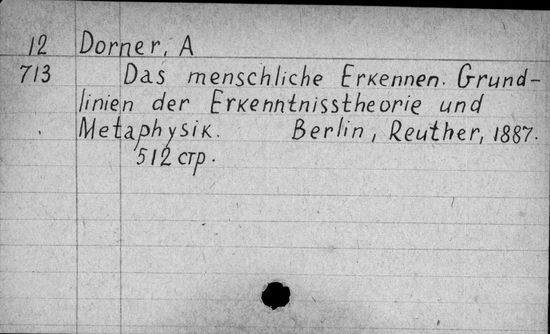 12 Dorner, A
713 Das menschliche Erkennen. Grund-
linien der Erkenntnisstheorie und
Metaphysik. Berlin, Reuther, 1887.
512 стр.